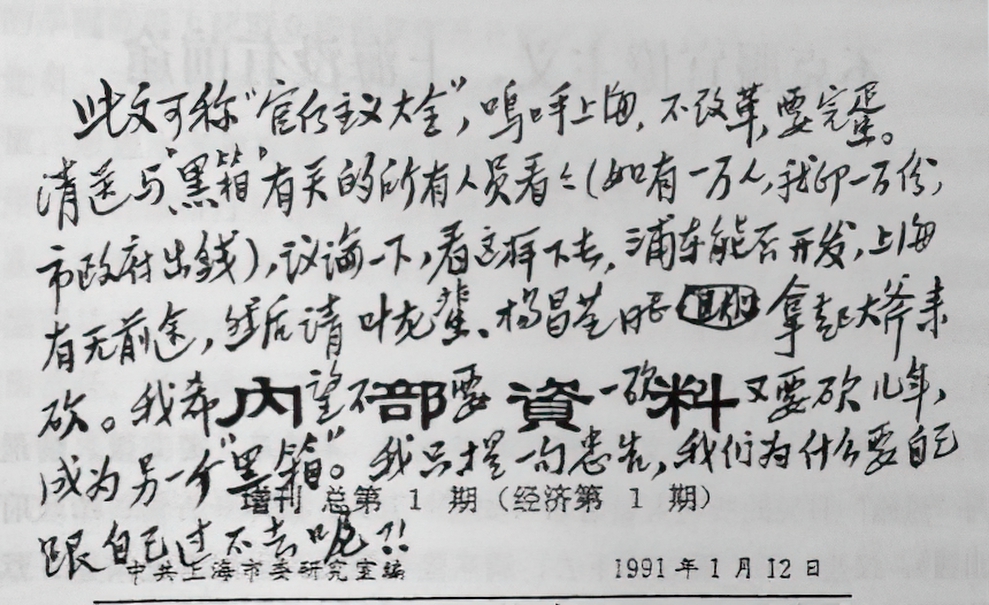 此文可称“官僚主义大全”，呜呼上海，不改革，要完蛋。
请送与“黑箱”有关的所有人员看々（如有一万人，我印一万份，
市政府出钱），议论一下，看这样下去，浦东能否开发，上海
有无前途，然后请叶龙蜚、杨昌基同志拿起大斧来
砍。我希望不要一砍又要砍几年，
内部資料
成为另一个“黑箱”。我只提一句忠告，我们为什么要自己
增刊 总第 1 期（经济第 1 期）
跟自己过不去呢?!
中共上海市委研究室编 1991年1月12日